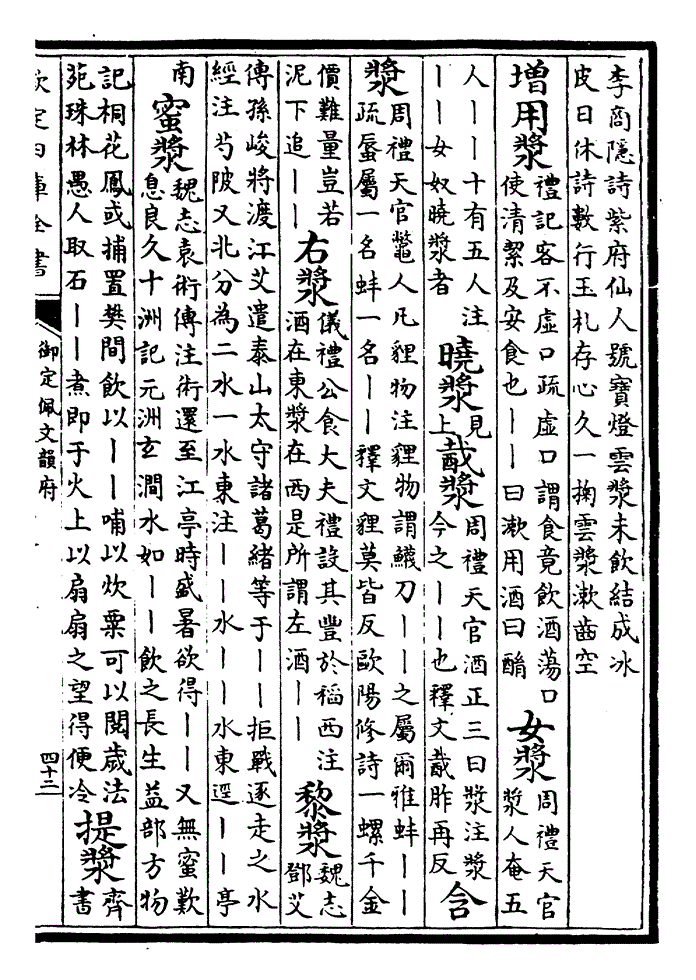 李商隱詩紫府仙人號寶燈雲漿未飲結成冰
皮日休詩數行玉札存心久一掬雲漿漱齒空
增用漿
禮記客不虛口疏虛口謂食竟飲酒蕩口
使清絜及安食也丨丨曰漱用酒曰酳
女漿
周禮天官
漿人奄五
人丨丨丨十有五人注
丨丨女奴曉漿者
曉漿
見
上
酨漿
周禮天官酒正三曰漿注漿
今之丨丨也釋文酨胙再反
含
漿
周禮天官鼈人凡貍物注貍物謂鱴刀丨丨之屬爾雅蚌丨丨
疏蜃屬一名蚌一名丨丨釋文貍莫皆反歐陽修詩一螺千金
價難量豈若
泥下追丨丨
右漿
儀禮公食大夫禮設其豐於稻西注
酒在東漿在西是所謂左酒丨丨
黎漿
魏志
鄧艾
傳孫峻將渡江艾遣泰山太守諸葛緒等于丨丨拒戰遂走之水
經注芍陂又北分為二水一水東注丨丨水丨丨水東逕丨丨亭
南
蜜漿
魏志袁術傳注術還至江亭時盛暑欲得丨丨又無蜜歎
息良久十洲記元洲玄澗水如丨丨飲之長生益部方物
記桐花鳳或捕置樊間飲以丨丨哺以炊粟可以閱歲法
苑珠林愚人取石丨丨煮即于火上以扇扇之望得便冷
提漿
齊
書
欽定四庫全書
御定佩文韻府
四十二